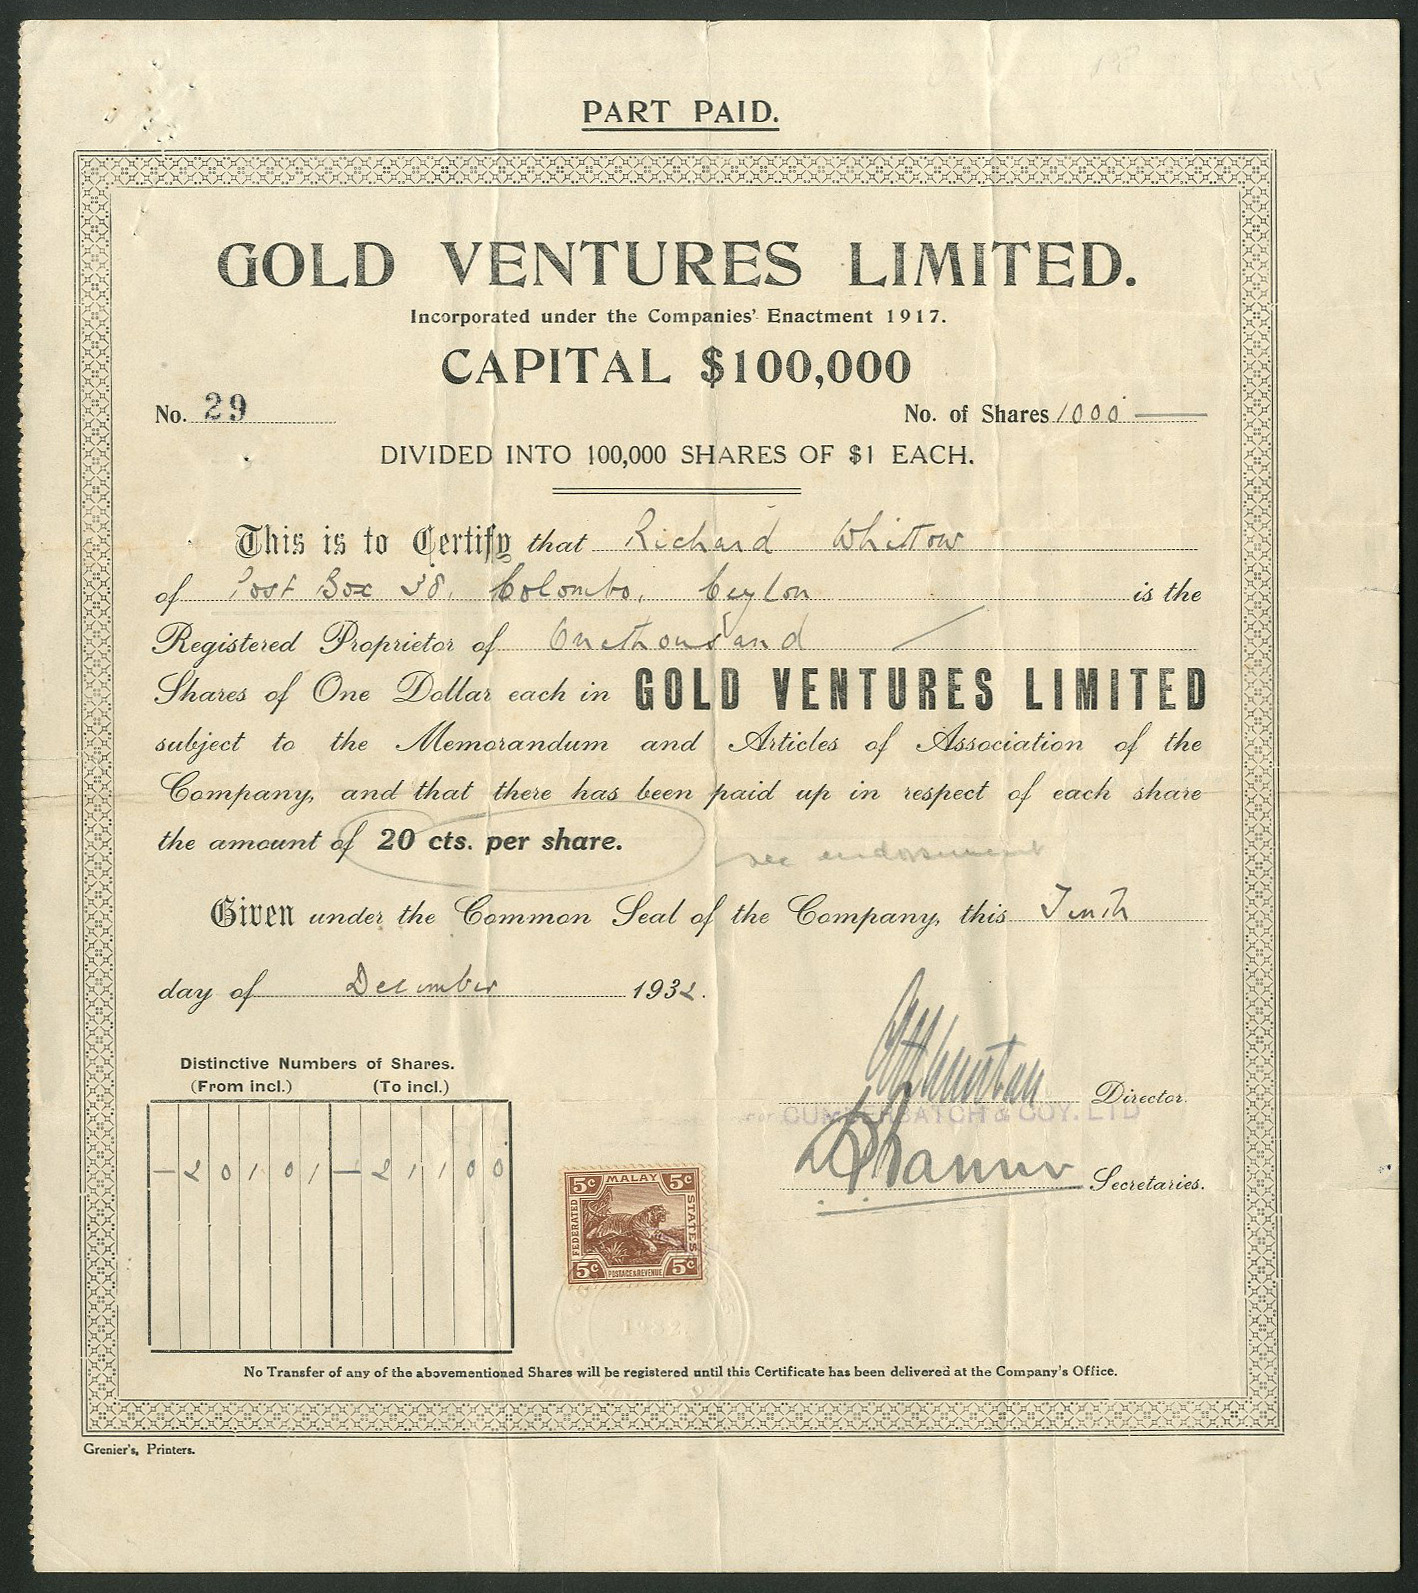 PART PAID.
GOLD VENTURES LIMITED.
Incorporated under the Companies' Enactment 1917.
CAPITAL $100,000
No. 29 No. of Shares 1000
DIVIDED INTO 100,000 SHARES OF $1 EACH.
This is to Certify that Richard Whittow
of Post Box 38, Colombo, Ceylon is the
Registered Proprietor of One thousand
Shares of One Dollar each in GOLD VENTURES LIMITED
subject to the Memorandum and Articles of Association of the
Company, and that there has been paid up in respect of each share
the amount of 20 cts. per share. see endorsement
Given under the Common Seal of the Company, this Tenth
day of December 1932.
Distinctive Numbers of Shares.
(From incl.) (To incl.)
— 20101 — 21100
Director.
CUMBERBATCH & COY. LTD
Secretaries.
5c MALAY 5c
FEDERATED STATES
5c POSTAGE & REVENUE 5c
1932
No Transfer of any of the abovementioned Shares will be registered until this Certificate has been delivered at the Company's Office.
Grenier's, Printers.